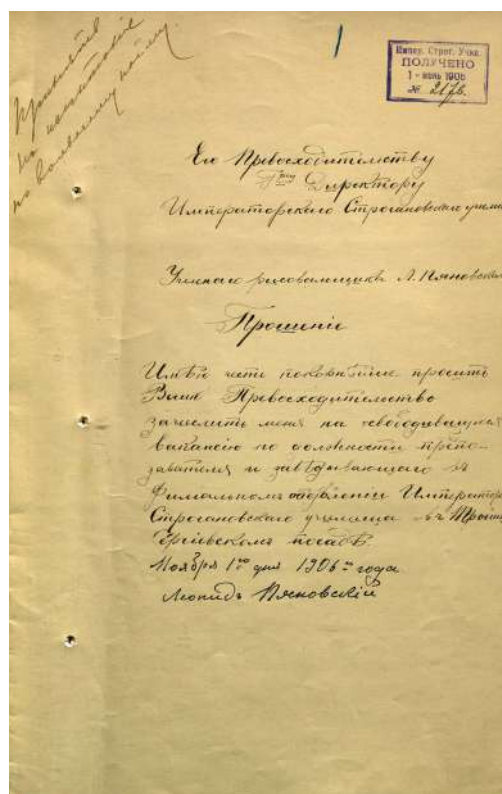 1
Импер. Строг. Учил.
ПОЛУЧЕНО
1 - 1906
№ 2176.
Принять
по вольному найму
Его Превосходительству
Г-ну Директору
Императорского Строгановского учили
Ученаго рисовальщика Л. Пяновска
Прошеніе
Имѣю честь покорнѣйше просить
Ваше Превосходительство
зачислить меня на освободившуюся
вакансію по должности препо-
давателя и завѣдывающаго въ
филіальномъ отдѣленіи Император
Строгановскаго училища въ Троиц
Сергіевскомъ посадѣ.
Ноября 1го дня 1906го года
Леонидъ Пяновскій